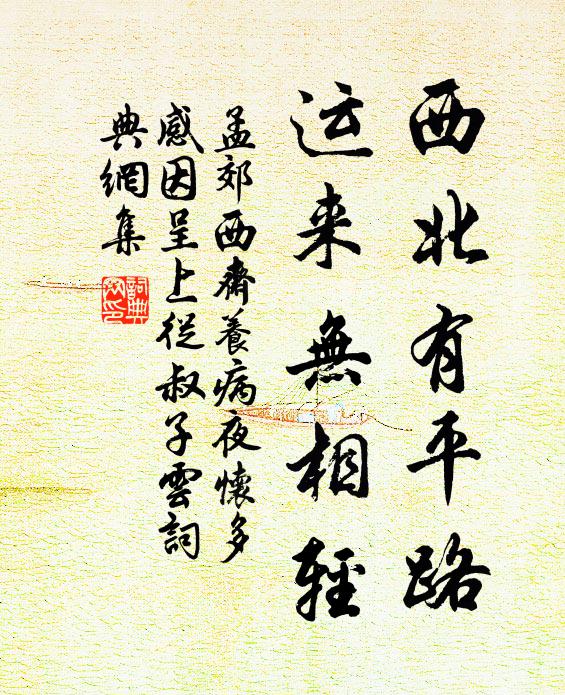 西北有平路
运来無相輕
孟郊西齋養病夜懷多
感因呈上從叔子雲詞
典網集
詞典網印